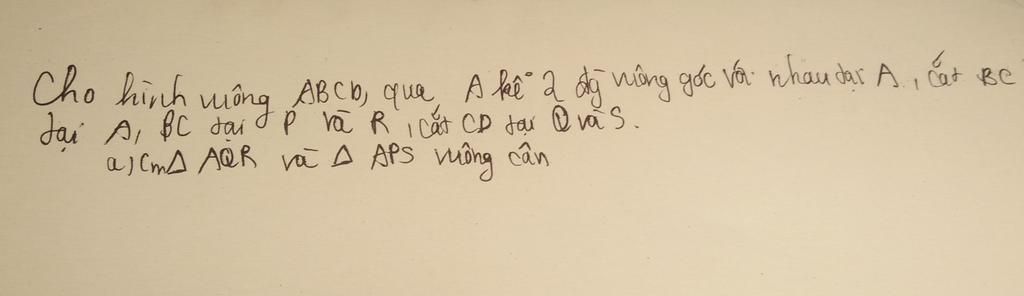 Cho hình vuông ABCD, qua A kẻ 2 đg vuông góc với nhau tại A, cắt BC
tại A, BC tại P và R, cắt CD tại Q và S.
a, Cm Δ AQR và Δ APS vuông cân